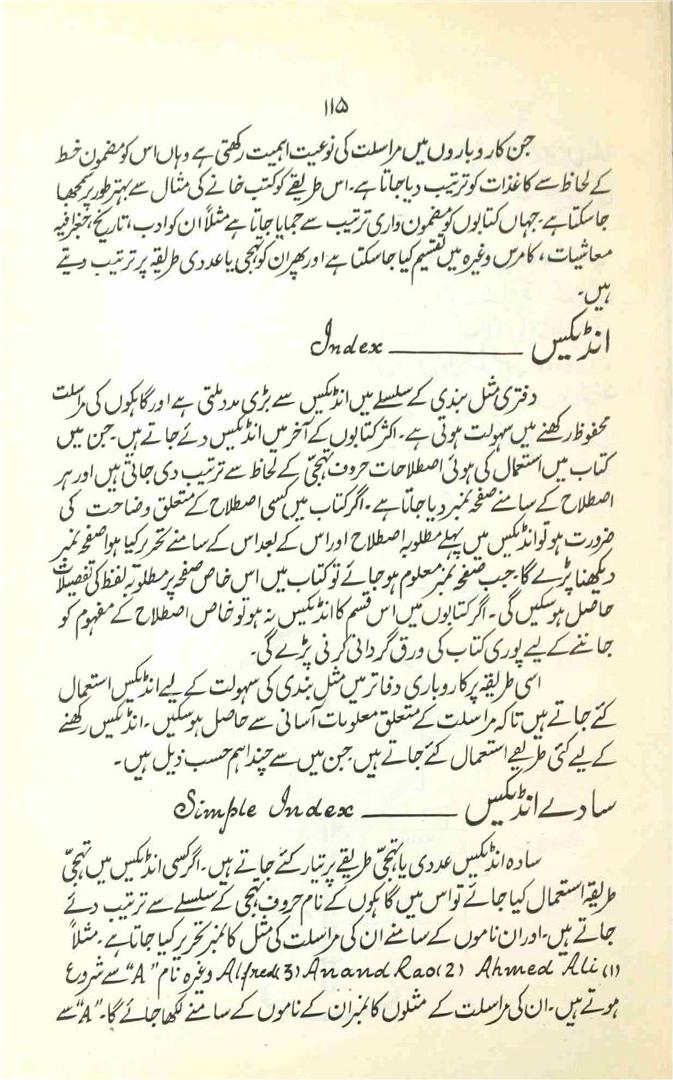 ۱۱۵
جن کاروباروں میں مراسلت کی نوعیت اہمیت رکھتی ہے وہاں اس کو مضمون خط
کے لحاظ سے کاغذات کو ترتیب دیا جاتا ہے۔ اس طریقے کو کتب خانے کی مثال سے بہتر طور پر سمجھا
جا سکتا ہے۔ جہاں کتابوں کو مضمون واری ترتیب سے جمایا جاتا ہے مثلاً ان کو ادب، تاریخ، جغرافیہ
معاشیات، کامرس وغیرہ میں تقسیم کیا جا سکتا ہے اور پھر ان کو تہجی یا عددی طریقہ پر ترتیب دیتے
ہیں۔
انڈیکس ——— Index
دفتری مثل بندی کے سلسلے میں انڈیکس سے بڑی مدد ملتی ہے اور گاہکوں کی مراسلت
محفوظ رکھنے میں سہولت ہوتی ہے۔ اکثر کتابوں کے آخر میں انڈیکس دئے جاتے ہیں۔ جن میں
کتاب میں استعمال کی ہوئی اصطلاحات حروف تہجّی کے لحاظ سے ترتیب دی جاتی ہیں اور ہر
اصطلاح کے سامنے صفحہ نمبر دیا جاتا ہے۔ اگر کتاب میں کسی اصطلاح کے متعلق وضاحت کی
ضرورت ہو تو انڈیکس میں پہلے مطلوبہ اصطلاح اور اس کے بعد اس کے سامنے تحریر کیا ہوا صفحہ نمبر
دیکھنا پڑے گا۔ جب صفحہ نمبر معلوم ہو جائے تو کتاب میں اس خاص صفحہ پر مطلوبہ لفظ کی تفصیلات
حاصل ہو سکیں گی۔ اگر کتابوں میں اس قسم کا انڈیکس نہ ہو تو خاص اصطلاح کے مفہوم کو
جاننے کے لیے پوری کتاب کی ورق گردانی کرنی پڑے گی۔
اسی طریقہ پر کاروباری دفاتر میں مثل بندی کی سہولت کے لیے انڈیکس استعمال
کئے جاتے ہیں تاکہ مراسلت کے متعلق معلومات آسانی سے حاصل ہو سکیں۔ انڈیکس رکھنے
کے لیے کئی طریقے استعمال کئے جاتے ہیں جن میں سے چند اہم حسب ذیل ہیں۔
سادے انڈیکس ——— Simple Index
سادہ انڈیکس عددی یا تہجّی طریقے پر تیار کئے جاتے ہیں۔ اگر کسی انڈیکس میں تہجّی
طریقہ استعمال کیا جائے تو اس میں گاہکوں کے نام حروف تہجی کے سلسلے سے ترتیب دئے
جاتے ہیں۔ اور ان ناموں کے سامنے ان کی مراسلت کی مثل کا نمبر تحریر کیا جاتا ہے۔ مثلاً
(1) Ahmed Ali (2) Anand Rao (3) Alfred وغیرہ نام "A" سے شروع
ہوتے ہیں۔ ان کی مراسلت کے مثلوں کا نمبر ان کے ناموں کے سامنے لکھا جائے گا۔ "A" سے